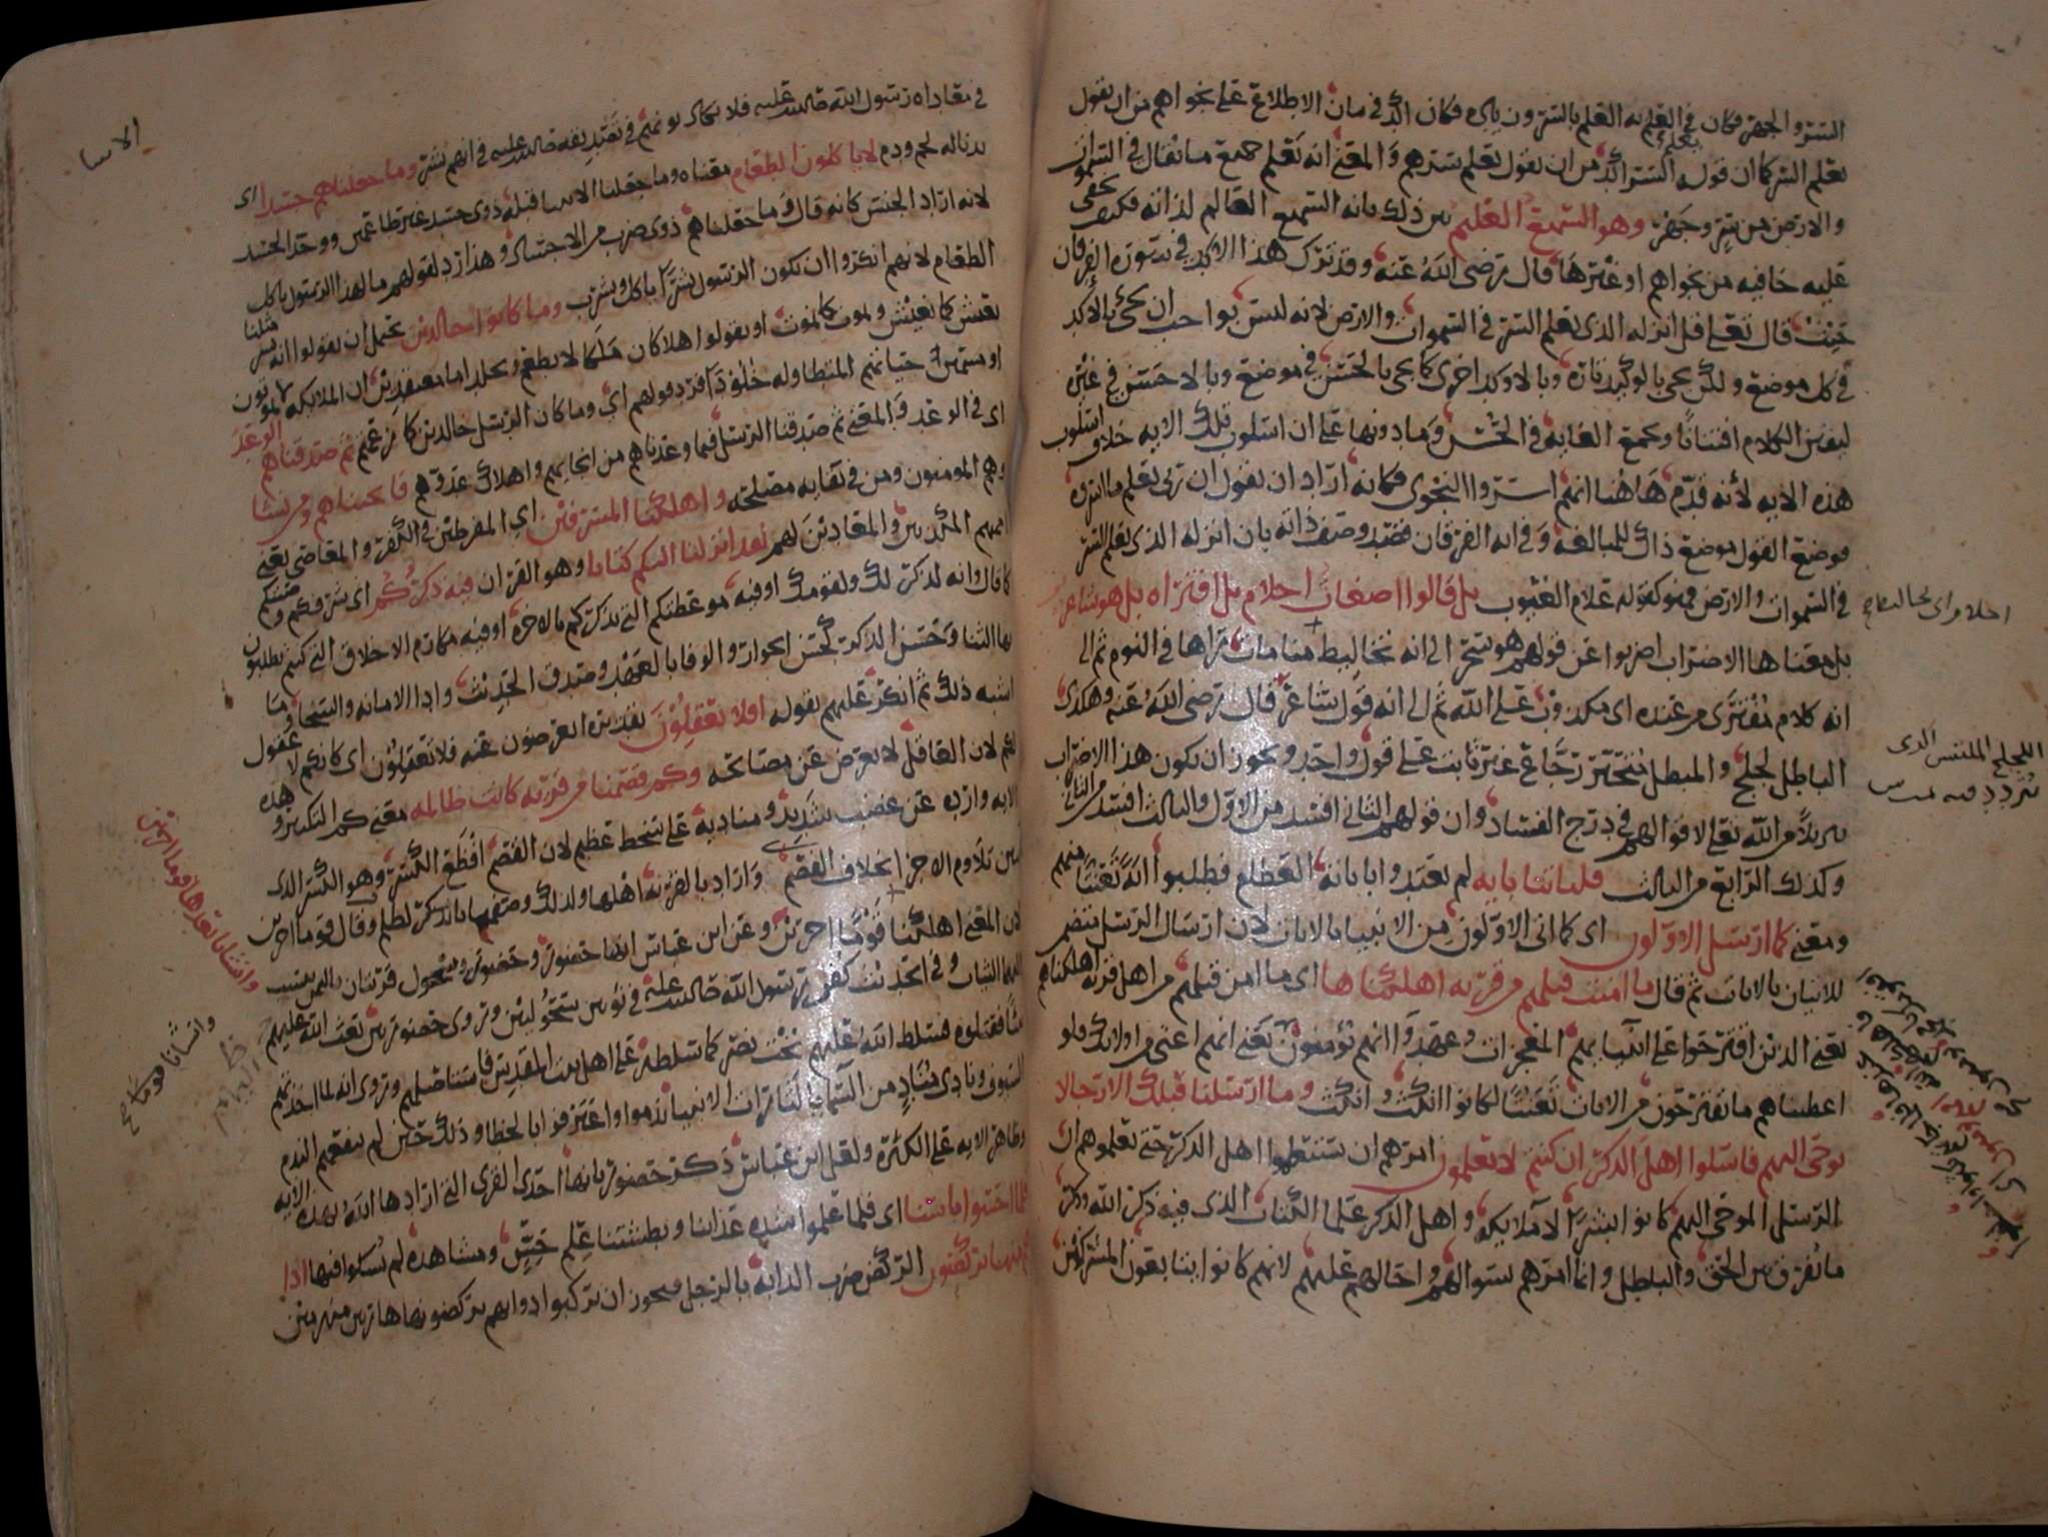 السر والجهر فكان في العلم به العلم بالسر وزياده فكان اكد في بيان الاطلاع على نجواهم من ان يقول
يعلم السر كما ان قوله يعلم السر اكد من ان يقول يعلم سرهم والمعنى انه يعلم جميع ما يقال في السموات
والارض من سر وجهر وهو السميع العليم بين ذلك بانه السميع العالم لذاته فكيف يخفى
عليه خافيه من نجواهم او غيرها قال رضى الله عنه وقد ترك هذا الاكد في سورة الفرقان
حيث قال تعلى قل انزله الذي يعلم السر في السموات والارض لانه ليس بواجب ان يجئ بالاكد
في كل موضع ولكن يجى بالوكيد تارة وبالاوكد اخرى كما يجى بالحسن في موضع وبالاحسن في غيره
ليفتن الكلام افتنانا ويجمع الغايه في الحسن وما دونها على ان اسلوب تلك الايه خلاف اسلوب
هذه الايه لأنه قدم هاهنا انهم اسروا النجوى فكانه اراد ان يقول ان ربى يعلم ما اسروه
فوضع القول موضع ذاك للمبالغه وفي ايه الفرقان قصد وصف ذاته بان انزله الذي يعلم السر
في السموات والارض فهو كقوله علام الغيوب بل قالوا اضغاث احلام بل افتراه بل هو شاعر
بل معناها الاضراب اضربوا عن قولهم هو سحر الى انه تخاليط منامات راها في النوم ثم الى
انه كلام مفترى من عنده اى مكذوب على الله ثم الى انه قول شاعر قال رضى الله عنه وهكذى
الباطل لجلج والمبطل متحير رجاع غير ثابت على قول واحد ويجوز ان يكون هذا الاضراب
تنزيلا من الله تعلى لاقوالهم في درج الفساد وان قولهم الثاني افسد من الاول والثالث افسد من الثاني
وكذلك الرابع من الثالث فلياتنا بايه لم يعتدوا بايات الله العظام فطلبوا اية تعنتا منهم
ومعنى كما ارسل الاولون اى كما اتى الاولون من الانبيا بالايات لان ارسال الرسل متضمن
للاتيان بالايات ثم قال ما امنت قبلهم من قريه اهلكناها اى ما امن قبلهم من اهل قريه اهلكناهم
يعني الذين اقترحوا على انبيايهم المعجزات وعهدوا انهم يؤمنون يعني انهم اعتى من اولئك ولو
اعطيناهم ما يقترحون من الايات تعنتا لكانوا انكث وانكث وما ارسلنا قبلك الا رجالا
نوحى اليهم فاسلوا اهل الذكر ان كنتم لا تعلمون امرهم ان يستعلموا اهل الذكر حتى يعلموهم ان
الرسل الموحى اليهم كانوا بشرا لا ملايكه واهل الذكر علما الكتاب الذي فيه ذكر الله وذكر
ما يفرق بين الحق والباطل وانما امرهم بسوالهم واحالهم عليهم لانهم كانوا يتابعون المشركين
احلام اى
اللجلج الملتبس الذي
يتردد فيه
الانبيا
في معاداه رسول الله صلى الله عليه فلا
بدناله لحم ودم لا ياكلون الطعام معناه وما جعلنا الانبيا قبله ذوى جسد غير طاعمين ووحد الجسد
لانه اراد الجنس كانه قال وما جعلناهم ذوى ضرب من الاجساد وهذا رد لقولهم ما لهذا الرسول ياكل
الطعام لانهم انكروا ان يكون الرسول بشرا ياكل ويشرب وما كانوا خالدين يحتمل ان يقولوا انه بشر مثلنا
يعيش كما نعيش ويموت كما نموت او يقولوا هلا كان ملكا لا يطعم ويخلد اما معتقدين ان الملايكه لا يموتون
او مسمين حياتهم المتطاوله خلودا فرد قولهم اي وما كان الرسل خالدين كما زعمتم ثم صدقناهم الوعد
اى في الوعد والمعنى ثم صدقنا الرسل فيما وعدناهم من انجايهم واهلاك عدوهم فانجيناهم ومن نشا
وهم المومنون ومن في بقايه مصلحه واهلكنا المسرفين اى المفرطين في الكفر والمعاصى يعني
لقد انزلنا اليكم كتابا وهو القران فيه ذكركم اى شرفكم وصيتكم
كما قال وانه لذكر لك ولقومك او فيه موعظتكم التي تذكركم بالاخره او فيه مكارم الاخلاق التي كنتم تطلبون
بها الثنا وحسن الذكر كحسن الجوار والوفا بالعهد وصدق الحديث وادا الامانه والسخا وما
اشبه ذلك ثم انكر عليهم بقوله افلا تعقلون تقديره اتعرضون عنه فلا تعقلون اى كانكم لا عقول
لكم لان العاقل لا يعرض عن مصالحه وكم قصمنا من قريه كانت ظالمه معنى كم التكثير وهذه
الايه وارده عن غضب شديد ومناديه على سخط عظيم لان القصم افظع الكسر وهو الكسر الذي
يبين تلاوم الاجزا بخلاف الفصم واراد بالقريه اهلها ولذلك وصفها بالظلم وقال قوما اخرين
لان المعنى اهلكنا قوما اخرين وعن ابن عباس انها حضور وحضور وسحول قريتان باليمن
اليهما الثياب وفي الحديث كفن رسول الله صلى الله عليه في ثوبين سحوليين وتروى حضورين بعث الله عليهم
نبيا فقتلوه فسلط الله عليهم بخت نصر كما سلطه على اهل بيت المقدس فاستاصلهم وتروى انه لما اخذتهم
السيوف ونادى مناد من السما يا لثارات الانبيا ندموا واعترفوا بالخطا وذلك حين لم ينفعهم الندم
وظاهر الايه على الكثره ولعل ابن عباس ذكر حضور بانها احدى القرى التي ارادها الله بهذه الايه
فلما احسوا باسنا اى فلما علموا شده عذابنا وبطشتنا علم حس ومشاهده لم يشكوا فيها اذا
هم منها يركضون الركض ضرب الدابه بالرجل فيجوز ان يركبوا دوابهم يركضونها هاربين منهزمين
وانشانا بعدها قوما اخرين
وانشانا قوما صح